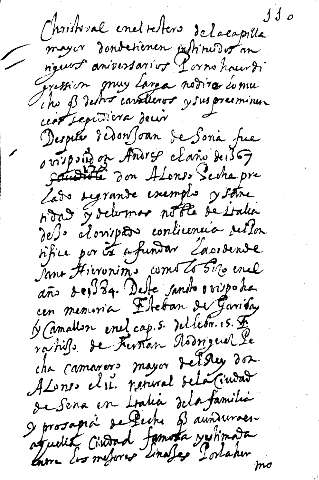 110
Christoval en el testero de la capilla
mayor donde tienen instituidos an
tiguos aniversarios Por no hacer di
gression muy larga no diré lo mu
cho q̃ destos cavalleros y sus preeminen
cias se pudiera decir
Despues de don Joan de Soria fue
ovispo don Andres el año de 1367
don Alonso Pecha pre
lado de grande exemplo y san
tidad y de lo mas noble de Italia
dexo el ovispado con licencia del Pon
tifice por yr a fundar la orden de
Sant Hieronimo como lo hizo en el
año de 1384. Deste sancto ovispo ha
cen memoria Esteban de Garivay
y Camallon en el cap. 5. del libr. 15. F
ra hijo de Hernan Rodriguez Pe
cha camarero mayor del Rey don
Alonso el 11. natural de la Ciudad
de Sena en Italia de la familia
y prosapia de Peche q̃ aun dura en
aquella Ciudad famosa y estimada
entre los mejores linajes Por la her
mo